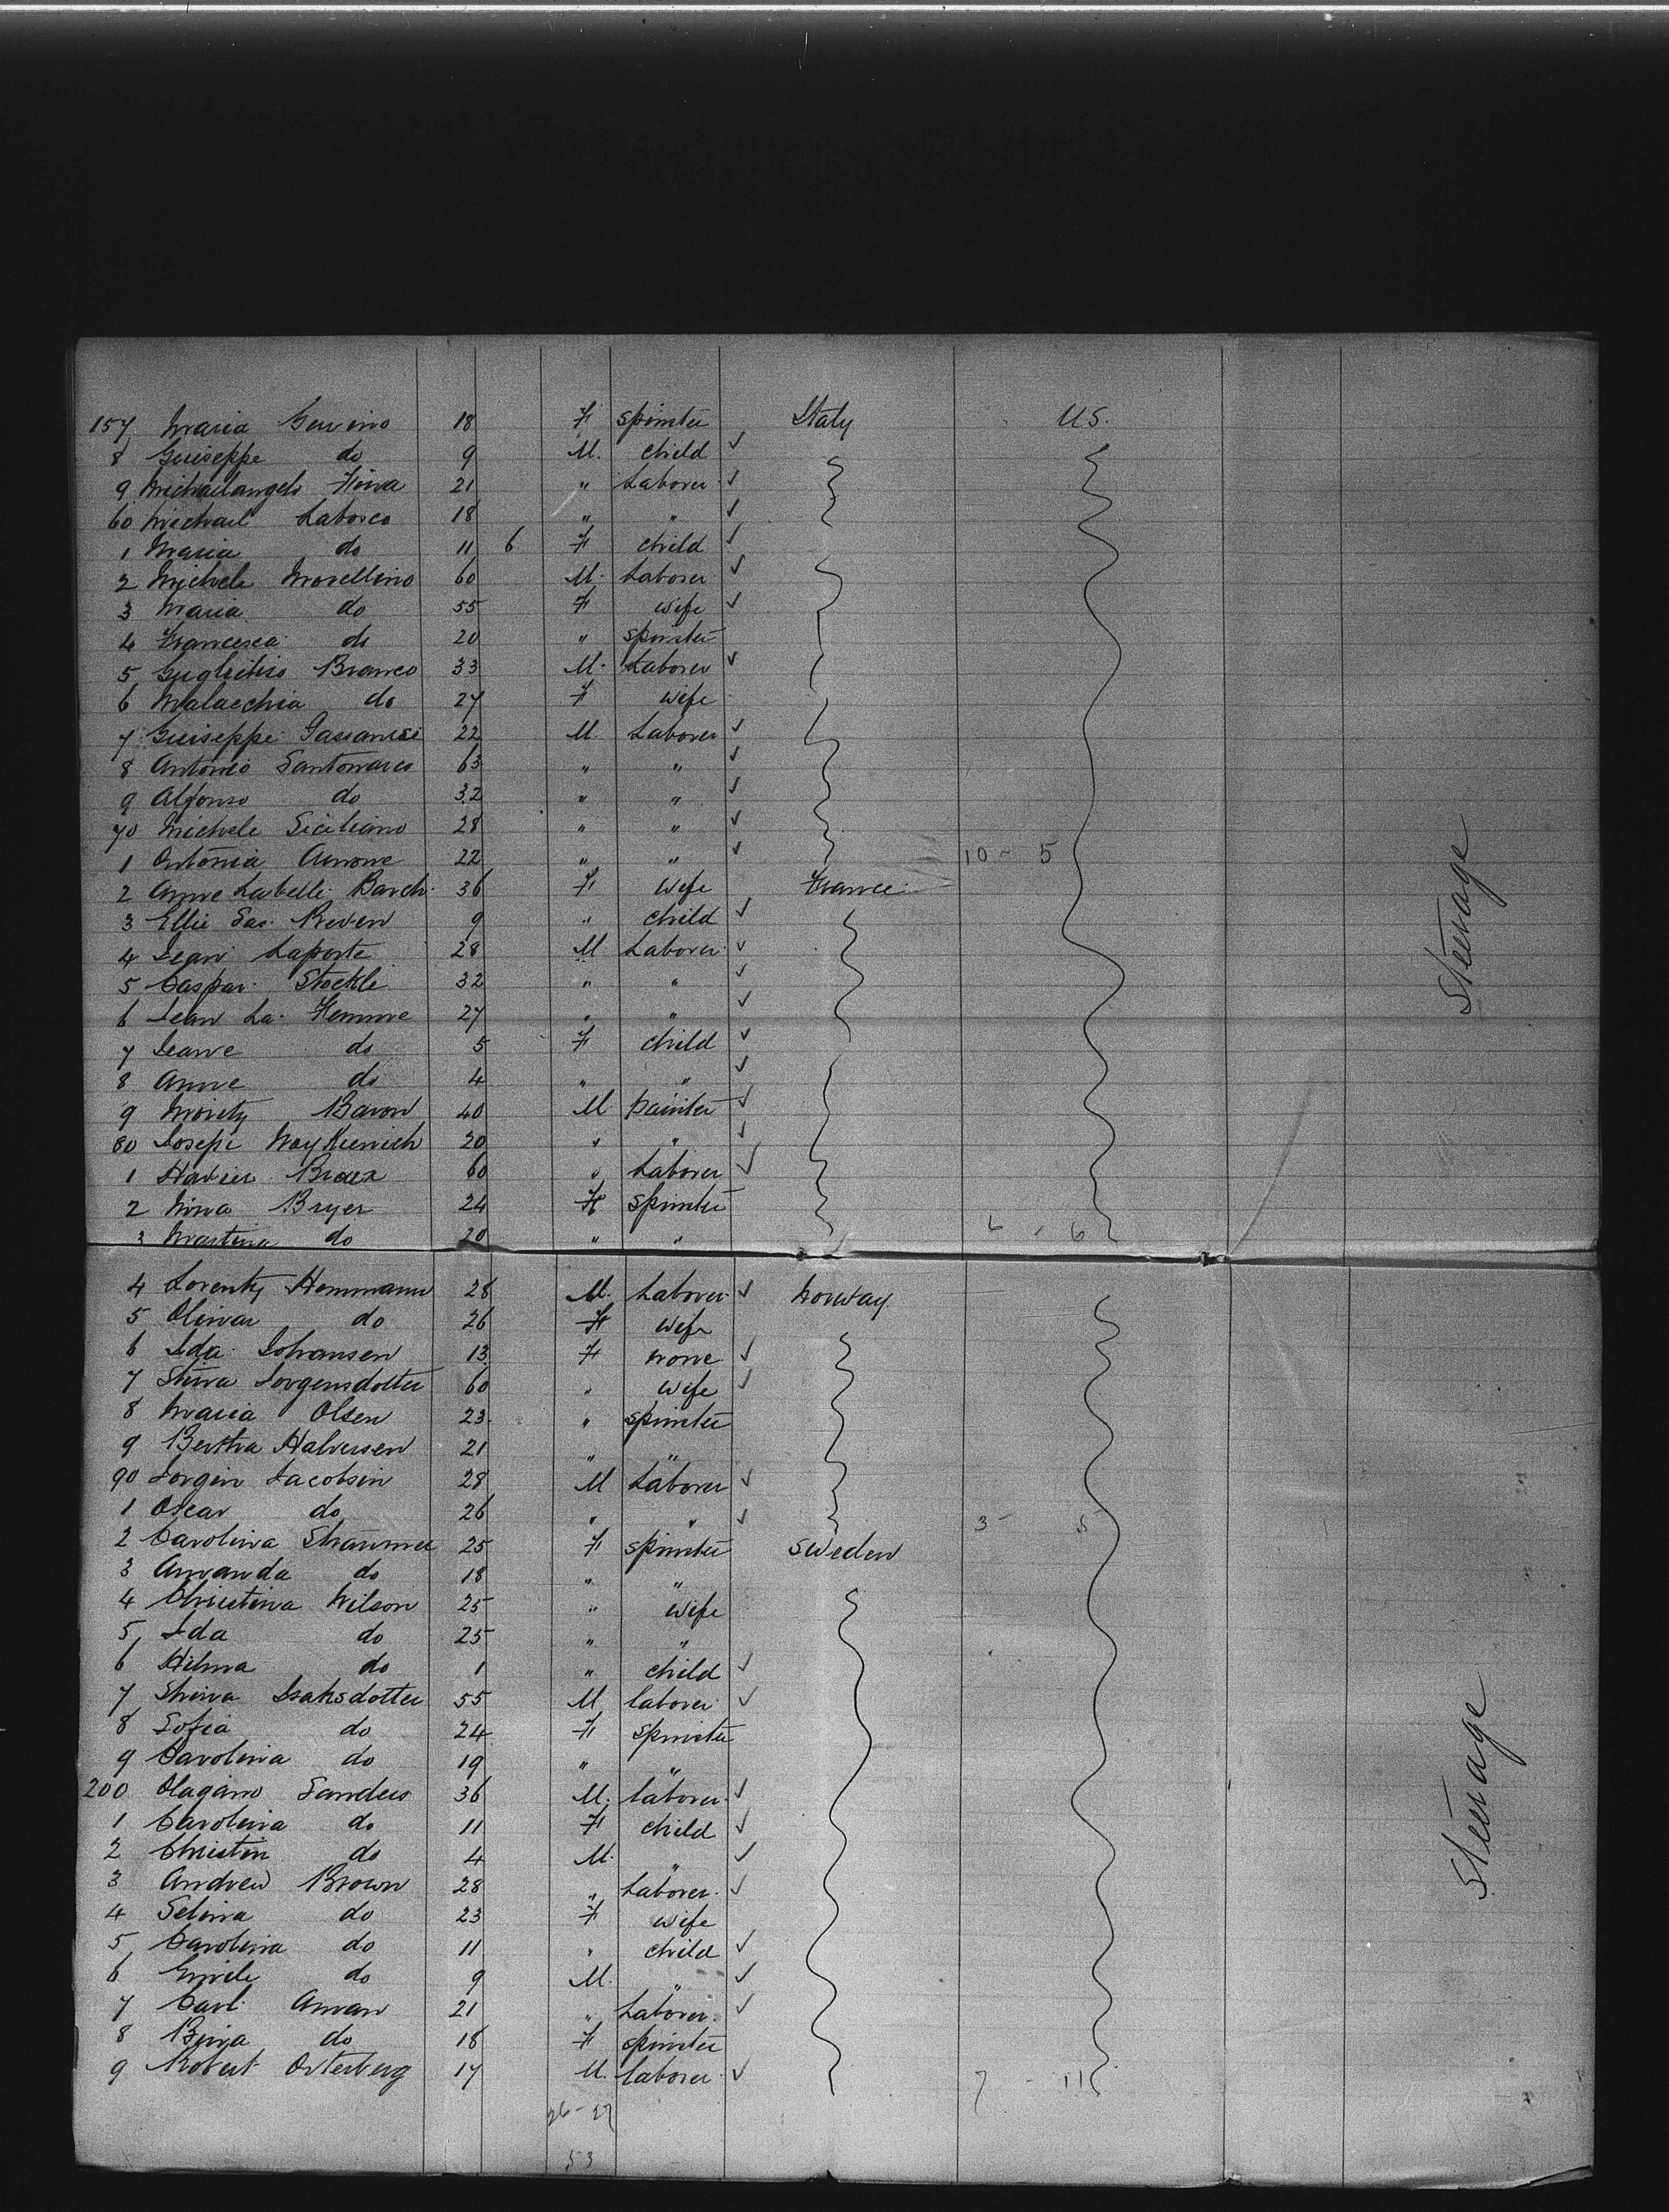 157 Maria Gervino 18 F spinster Italy U.S.
8 Guiseppe do 9 M. child ✓
9 Michaelangelo Finva 21 " Laborer ✓
60 Michael Labosco 18 " " ✓
1 Maria do 11 6 F child ✓
2 Michele Morellino 60 M. Laborer ✓
3 Maria do 55 F wife ✓
4 Francesca do 20 " spinster
5 Guglieliso Branco 33 M. Laborer ✓
6 Malacchia do 27 F wife
7 Guiseppe 22 M Laborer ✓
8 Antonio Santomarco 63 " " ✓
9 Alfonso do 32 " " ✓
70 Michele Siciliano 28 " " ✓
1 Antonia Amone 22 " " ✓ 10 - 5
2 Anne Labelle Barch. 36 F Wife France
3 Ellie Sac. Reven 9 " child ✓
4 Jean Laporte 28 M Laborer ✓
5 Caspar Stockli 32 " " ✓
6 Jean La. Femme 27 " " ✓
7 Jeanne do 5 F child ✓
8 Anne do 4 " " ✓
9 Moritz Baron 40 M painter ✓
80 Joseph 20 " " ✓
1 Havier Braux 60 " Laborer ✓
2 Nina Bryer 24 F spinster
3 Martina do 20 " " 6 - 6
4 Lorentz Hemmann 28 M. Laborer ✓ Norway
5 Olivar do 26 F wife
6 Ida Johansen 13 F none ✓
7 Stina Jorgensdotter 60 " wife ✓
8 Maria Olsen 23. " spinster
9 Bertha Halversen 21 " "
90 Jorgin Jacobsin 28 M Laborer ✓
1 Oscar do 26 " " ✓ 3 - 5
2 Carolina 25 F spinster Sweden
3 Amanda do 18 " "
4 Christina Nilson 25 " wife
5 Ida do 25 " "
6 Hilma do 1 " child ✓
7 Shina Isaksdotter 55 M laborer ✓
8 Sofia do 24 F spinster
9 Carolina do 19 " "
200 Olagano Sanders 36 M. laborer ✓
1 Carolina do 11 F child ✓
2 Christin do 4 M. " ✓
3 Andrew Brown 28 " Laborer ✓
4 Selina do 23 F wife
5 Carolina do 11 " child ✓
6 Emile do 9 M. " ✓
7 Carl Aman 21 " Laborer ✓
8 Bina do 18 F spinster
9 Robert Osterberg 17 M. laborer ✓ 7 - 11
26 - 27
53
Steerage
Steerage